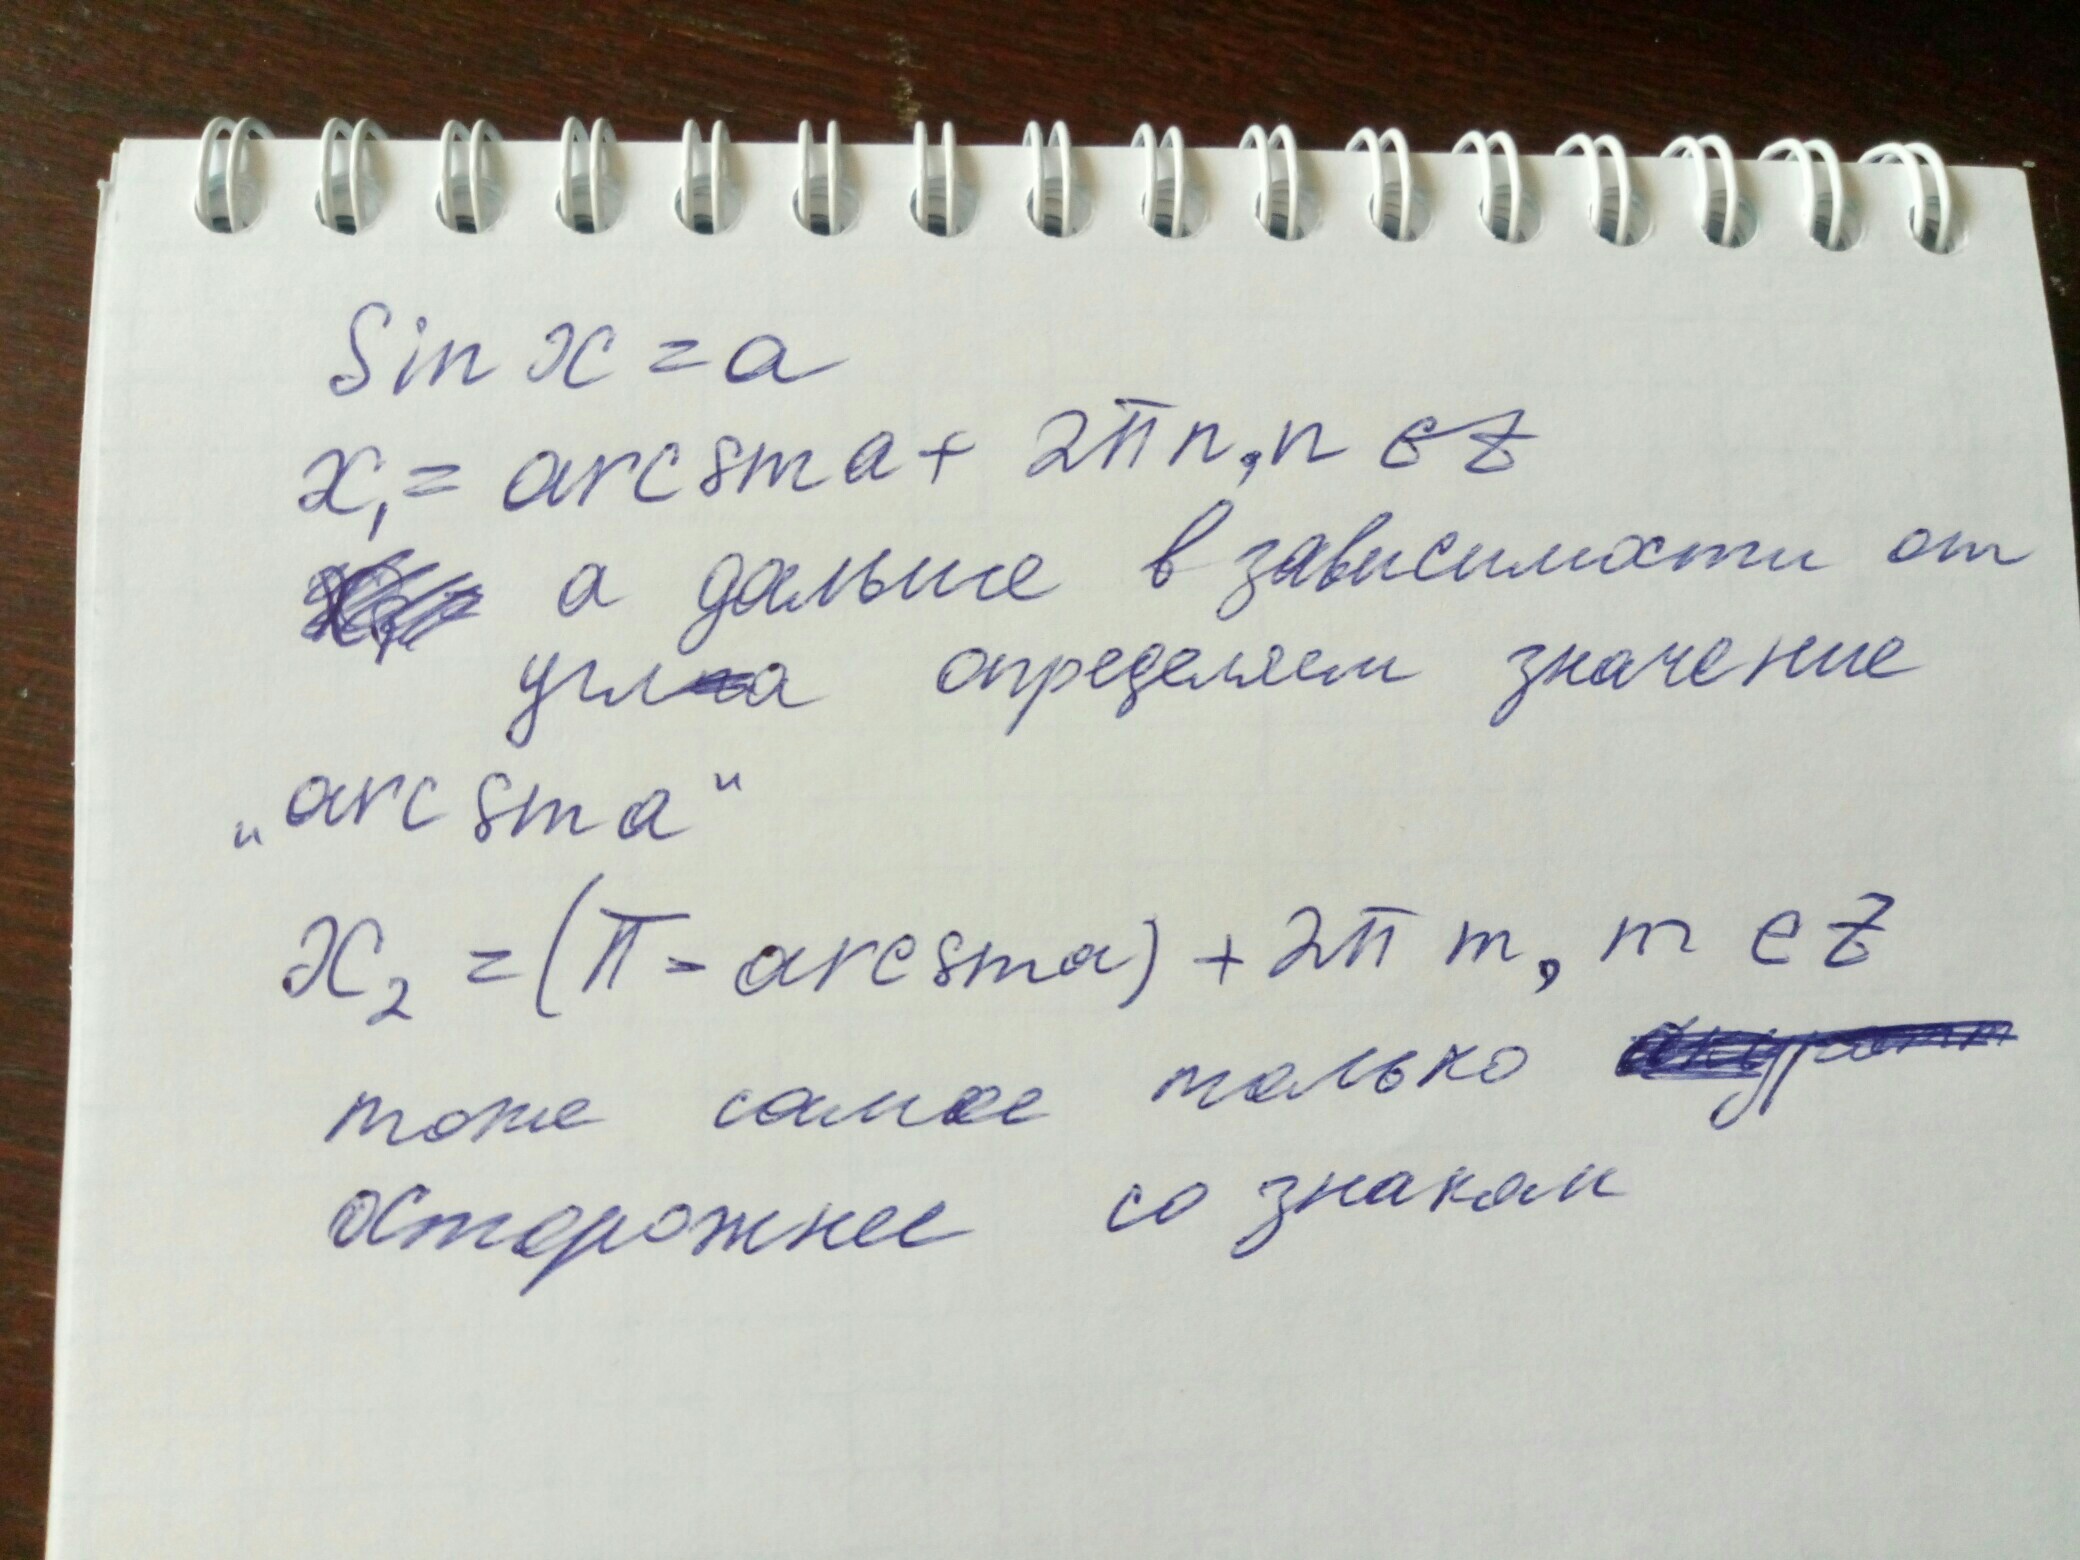 Sin x = a
x₁ = arcsin a + 2πn, n ∈ Z
а дальше в зависимости от
угла определяем значение
„arcsin a“
x₂ = (π - arcsin a) + 2π m, m ∈ Z
тоже самое только
осторожнее со знаком